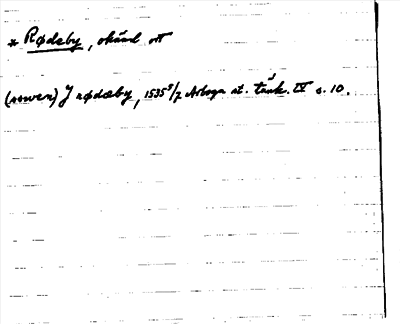 * Rødeby, okänd ort
(swen) J rødæby, 1535 5/7 Arboga st. tänk. IV s. 10.